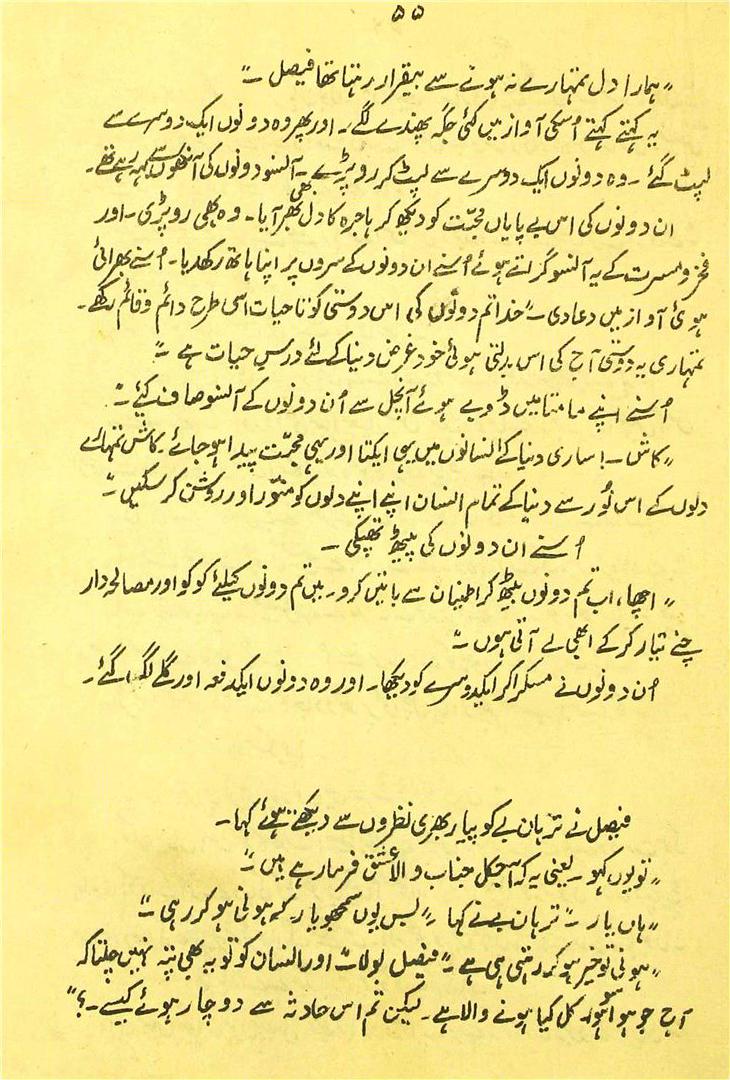 ۵۵
"ہمارا دل تمہارے نہ ہونے سے بیقرار رہتا تھا فیصل ۔"
یہ کہتے کہتے اُسکی آواز میں کئی جگہ پھندے لگے۔ اور پھر وہ دونوں ایک دوسرے سے
لپٹ گئے ۔ وہ دونوں ایک دوسرے سے لپٹ کر روپڑے ۔ آنسو دونوں کی آنکھوں سے بہہ رہے تھے۔
ان دونوں کی اس بے پایاں محبّت کو دیکھ کر ہاجرہ کا دل بھی بھر آیا۔ وہ بھی روپڑی ۔ اور
فخر و مسرت کے یہ آنسو گراتے ہوئے اُسنے ان دونوں کے سروں پر اپنا ہاتھ رکھدیا۔ اُسنے بھرائی
ہوئی آواز میں دعا دی ۔ "خدا تم دونوں کی اس دوستی کو تا حیات اسی طرح دائم و قائم رکھے ۔
تمہاری یہ دوستی آج کی اس بدلتی ہوئی خود غرض دنیا کے لئے درسِ حیات ہے ۔"
اُسنے اپنے مامتا میں ڈوبے ہوئے آنچل سے اُن دونوں کے آنسو صاف کیئے ۔"
"کاش ۔! ساری دنیا کے انسانوں میں یہی ایکتا اور یہی محبّت پیدا ہو جائے۔ کاش تمہارے
دلوں کے اس نُور سے دنیا کے تمام انسان اپنے اپنے دلوں کو منوّر اور روشن کر سکیں ۔"
اُسنے ان دونوں کی پیٹھ تھپکی ۔
"اچھا، اب تم دونوں بیٹھ کر اطمینان سے باتیں کرو۔ میں تم دونوں کیلئے کوکو اور مصالحہ دار
چنے تیار کر کے ابھی لے آتی ہوں ۔"
اُن دونوں نے مسکرا کر ایکدوسرے کو دیکھا۔ اور وہ دونوں ایکدفعہ اور گلے لگ گئے ۔
فیصل نے تربان بے کو پیار بھری نظروں سے دیکھتے ہوئے کہا ۔
"تو یوں کہو ۔ یعنی یہ کہ آجکل جناب والا عشق فرمار ہے ہیں ۔"
"ہاں یار ۔" تربان بے نے کہا ۔ "بس یوں سمجھو یار کہ ہونی ہو کر رہی ۔"
"ہونی تو خیر ہو کر رہتی ہی ہے ۔" فیصل بولا ۔ "اور انسان کو تو یہ بھی پتہ نہیں چلتا کہ
آج جو ہوا سو ہوا۔ کل کیا ہونے والا ہے ۔ لیکن تم اس حادثہ سے دو چار ہوئے کیسے ۔؟"